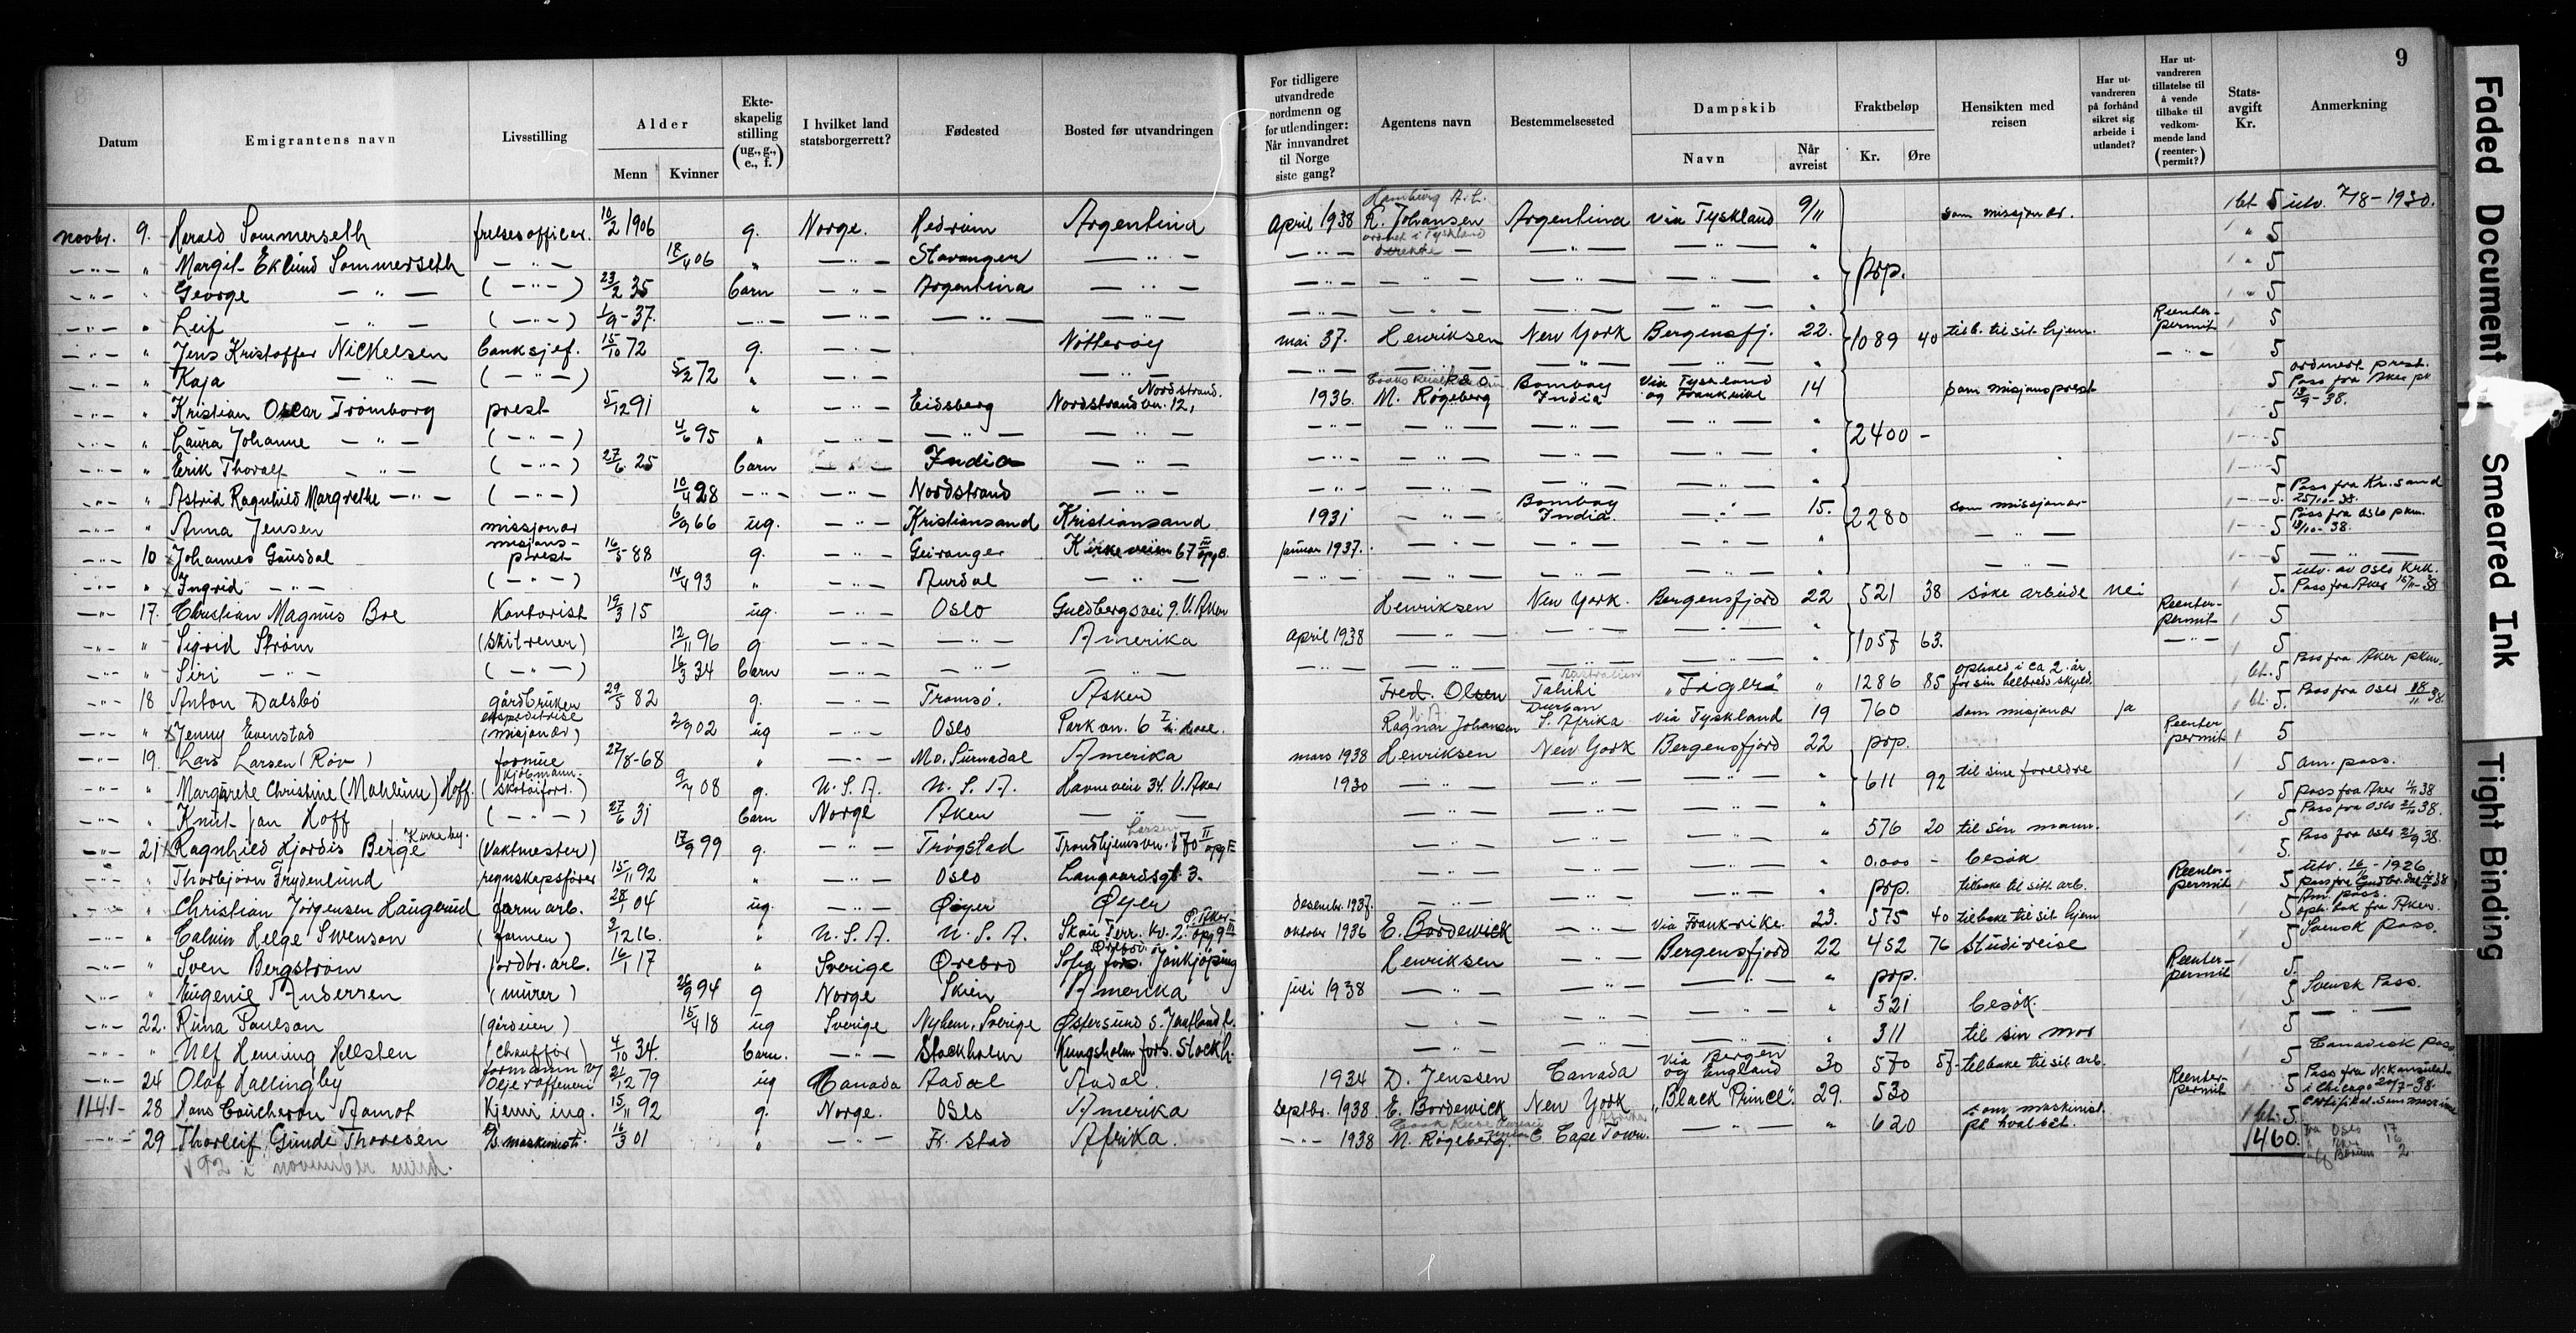 9
Datum | Emigrantens navn | Livsstilling | Alder Menn | Kvinner | Ekteskapelig stilling (ug., g., e., f.) | I hvilket land statsborgerrett? | Fødested | Bosted før utvandringen | For tidligere utvandrede nordmenn og for utlendinger: Når innvandret til Norge siste gang? | Agentens navn | Bestemmelsessted | Dampskib Navn | Når avreist | Fraktbeløp Kr. | Øre | Hensikten med reisen | Har utvandreren på forhånd sikret sig arbeide i utlandet? | Har utvandreren tillatelse til å vende tilbake til vedkommende land (reenterpermit?) | Statsavgift Kr. | Anmerkning
novbr. 9. Harald Sommerseth frelsesofficer. 10/2 1906 g. Norge. Hedrum Argentina April 1938 Hamburg A.L. R. Johansen Argentina via Tyskland 9/11 som missjonær. 1 bt 5 utv. 7/8-1930.
-"- " Margit Eklund Sommerseth -"- 18/4 06 " -"- Stavanger -"- -"- -"- -"- " 5
-"- " George -"- (-"-) 23/2 35 barn -"- Argentina -"- -"- -"- -"- " prp. 5
-"- " Leif -"- (-"-) 1/9-37. -"- -"- -"- -"- -"- -"- -"- " 5
-"- " Jens Kristoffer Nickelsen banksjef. 15/10 72 g. -"- Nötteröy mai 37. Henriksen New York Bergensfj. 22. 1089 40 tilb. til sit hjem. Reenter-permit 5
-"- " Kaja -"- (-"-) 5/2 72 " -"- -"- -"- -"- -"- -"- " -"- 5
-"- " Kristian Oscar Trömborg prest 5/12 91 " -"- Eidsberg Nordstrandvn. 12, Nordstrand. 1936. M. Røgeberg Bombay India via Tyskland og Frankrike 14 som misjonsprest 5 ordinert prest. Pass fra Aker pk 13/9-38.
-"- " Laura Johanne -"- (-"-) 4/6 95 " -"- -"- -"- -"- -"- -"- -"- " 2400 - 5
-"- " Erik Thoralf -"- (-"-) 27/6 25 barn -"- India -"- -"- -"- -"- " 5
-"- " Astrid Ragnhild Margrethe -"- (-"-) 10/4 28 -"- -"- Nordstrand -"- -"- -"- -"- -"- " 5
-"- " Anna Jensen missjonær 6/9 66 ug. -"- Kristiansand Kristiansand 1931 -"- Bombay India. -"- 15. 2280 som missjonær 5. Pass fra Kr.sand 25/10-38.
-"- 10 Johannes Gausdal misjons-prest 16/5 88 g. -"- Geiranger Kirkeveien 67 III opg B. januar 1937. -"- -"- -"- " -"- 5 Pass fra Oslo pkm. 18/10-38.
-"- " Ingrid -"- (-"-) 14/4 93 " -"- Aurdal -"- -"- -"- -"- -"- " -"- 5 -"-
-"- 17. Christian Magnus Boe Kontorist 19/3 15 ug. -"- Oslo Guldbergsvei 9. V. Aker Henriksen New York. Bergensfjord 22 521 38 søke arbeide nei 5. utv. av Oslo Krk. Pass fra Aker 15/11-38
-"- " Sigrid Ström (skitrener) 12/11 96 g -"- -"- Amerika April 1938 -"- -"- -"- " 1057 63. Reenter-permit 5
-"- " Siri -"- (-"-) 16/3 34 barn -"- -"- -"- -"- -"- -"- -"- " -"- 5
-"- 18 Anton Dalsbö gårdbruker 29/5 82 g. -"- Tromsö. Asker Fred. Olsen Tahiti "Tigers" " 1286 85 ophold i ca 2 år for sin helbreds skyld. bt. 5 Pass fra Aker pkm.
-"- " Jenny Evenstad ekspeditrise (misjonær) 2/9 02 ug -"- Oslo Parkvn. 6 I Ragnar Johansen Durban S. Afrika via Tyskland 19 760 som misjonær ja bt. 5. Pass fra Oslo 18/11 38.
-"- 19. Lars Larsen (Röv) formue 27/8-68 " -"- Mo. Surnadal Amerika mars 1938 Henriksen New York Bergensfjord 22 prp. Reenter permit 5
-"- " Margarethe Christine (Mahleim) Hoff. kjöbmann. 9/7 08 g. U.S.A. U.S.A. Havneveien 34. V. Aker 1930 -"- -"- -"- " 611 92 til sine foreldre 5 am. pass.
-"- " Knut Jan Hoff (-"-) 27/6 31 barn Norge Aker -"- -"- -"- -"- " 5 pass fra Aker 1/11 38
-"- 21 Ragnhild Hjördis Berge Kirkeby. (Vaktmester) 17/9 99 g. -"- Trøgstad Trondhjemsvn. 170 II opg E -"- -"- -"- " 576 20 til sin mann. 5 Pass fra Oslo 2/11 38.
-"- " Thorbjørn Frydenlund regnskapsfører 15/11 92 " -"- Oslo Langaardsgt 3. -"- -"- -"- " 0.000 - besök 5. Pass fra Oslo 21/9 38.
-"- " Christian Jörgensen Haugerud farm arb. 28/1 04 ug. -"- Øyer Øyer desembr. 1937. -"- -"- -"- " prp. tilbake til sitt arb. Reenter-permit 5 utv. 16/11-1926
-"- " Calvin Helge Swenson (farmer) 3/12 16. " U.S.A. U.S.A. Skau Terr. kv. 2. opg 9 III Ø. Aker oktober 1936 E. Bordewick -"- via Frankrike. 23. 575 40 tilbake til sit hjem 5 Am. pass. oph. bok fra Aker.
-"- " Sven Bergström jordbr. arb. 16/1 17 " Sverige Örebro Sofia förs. Jönkjöping Henriksen -"- Bergensfjord 22 452 76 studiereise 5 Svensk pass.
-"- " Eugenie Andersen (murer) 26/9 94 g Norge Skien Amerika juli 1938 -"- -"- -"- " prp. Reenter-permit 5.
-"- 22. Runa Paulson (gårdeier) 15/4 18 ug Sverige Nyhem, Sverige Østersund S. Jemtland l. -"- -"- -"- " 521 besök. 5 Svensk Pass.
-"- " Ulf Henning Hellsten (chauffør) 4/10 34. barn. -"- Stockholm Kungsholm förs. Stockh. -"- -"- -"- " 311 til sin mor 5 -"-
-"- 24 Olaf Hallingby formann v/ Olje raffeneri 21/12 79 ug Canada Aadal Aadal. 1934 D. Jenssen Canada via Bergen og England 30 570 57 tilbake til sit arb. 5 Canadisk pass
1141- 28 Hans Coucheron Aamot Kjemi ing. 15/11 92 g. Norge. Oslo Amerika Septbr. 1938 E. Bordewick New York "Black Prince". 29. 530 Reenter-permit 5 Pass fra N. Konsulat i Chicago 20/7-38.
-"- 29 Thorleif Gunde Thoresen maskinist. 16/3 01 " -"- Fr. stad Afrika. -"- 1938 N. Røgeberg. Cape Town. -"- " 620 som maskinist. på hvalbåt. 1 bt. 5
192 i november mnd.
1460. fra Oslo 17
" Aker 16
" Bærum 2
Faded Document
Smeared Ink
Tight Binding